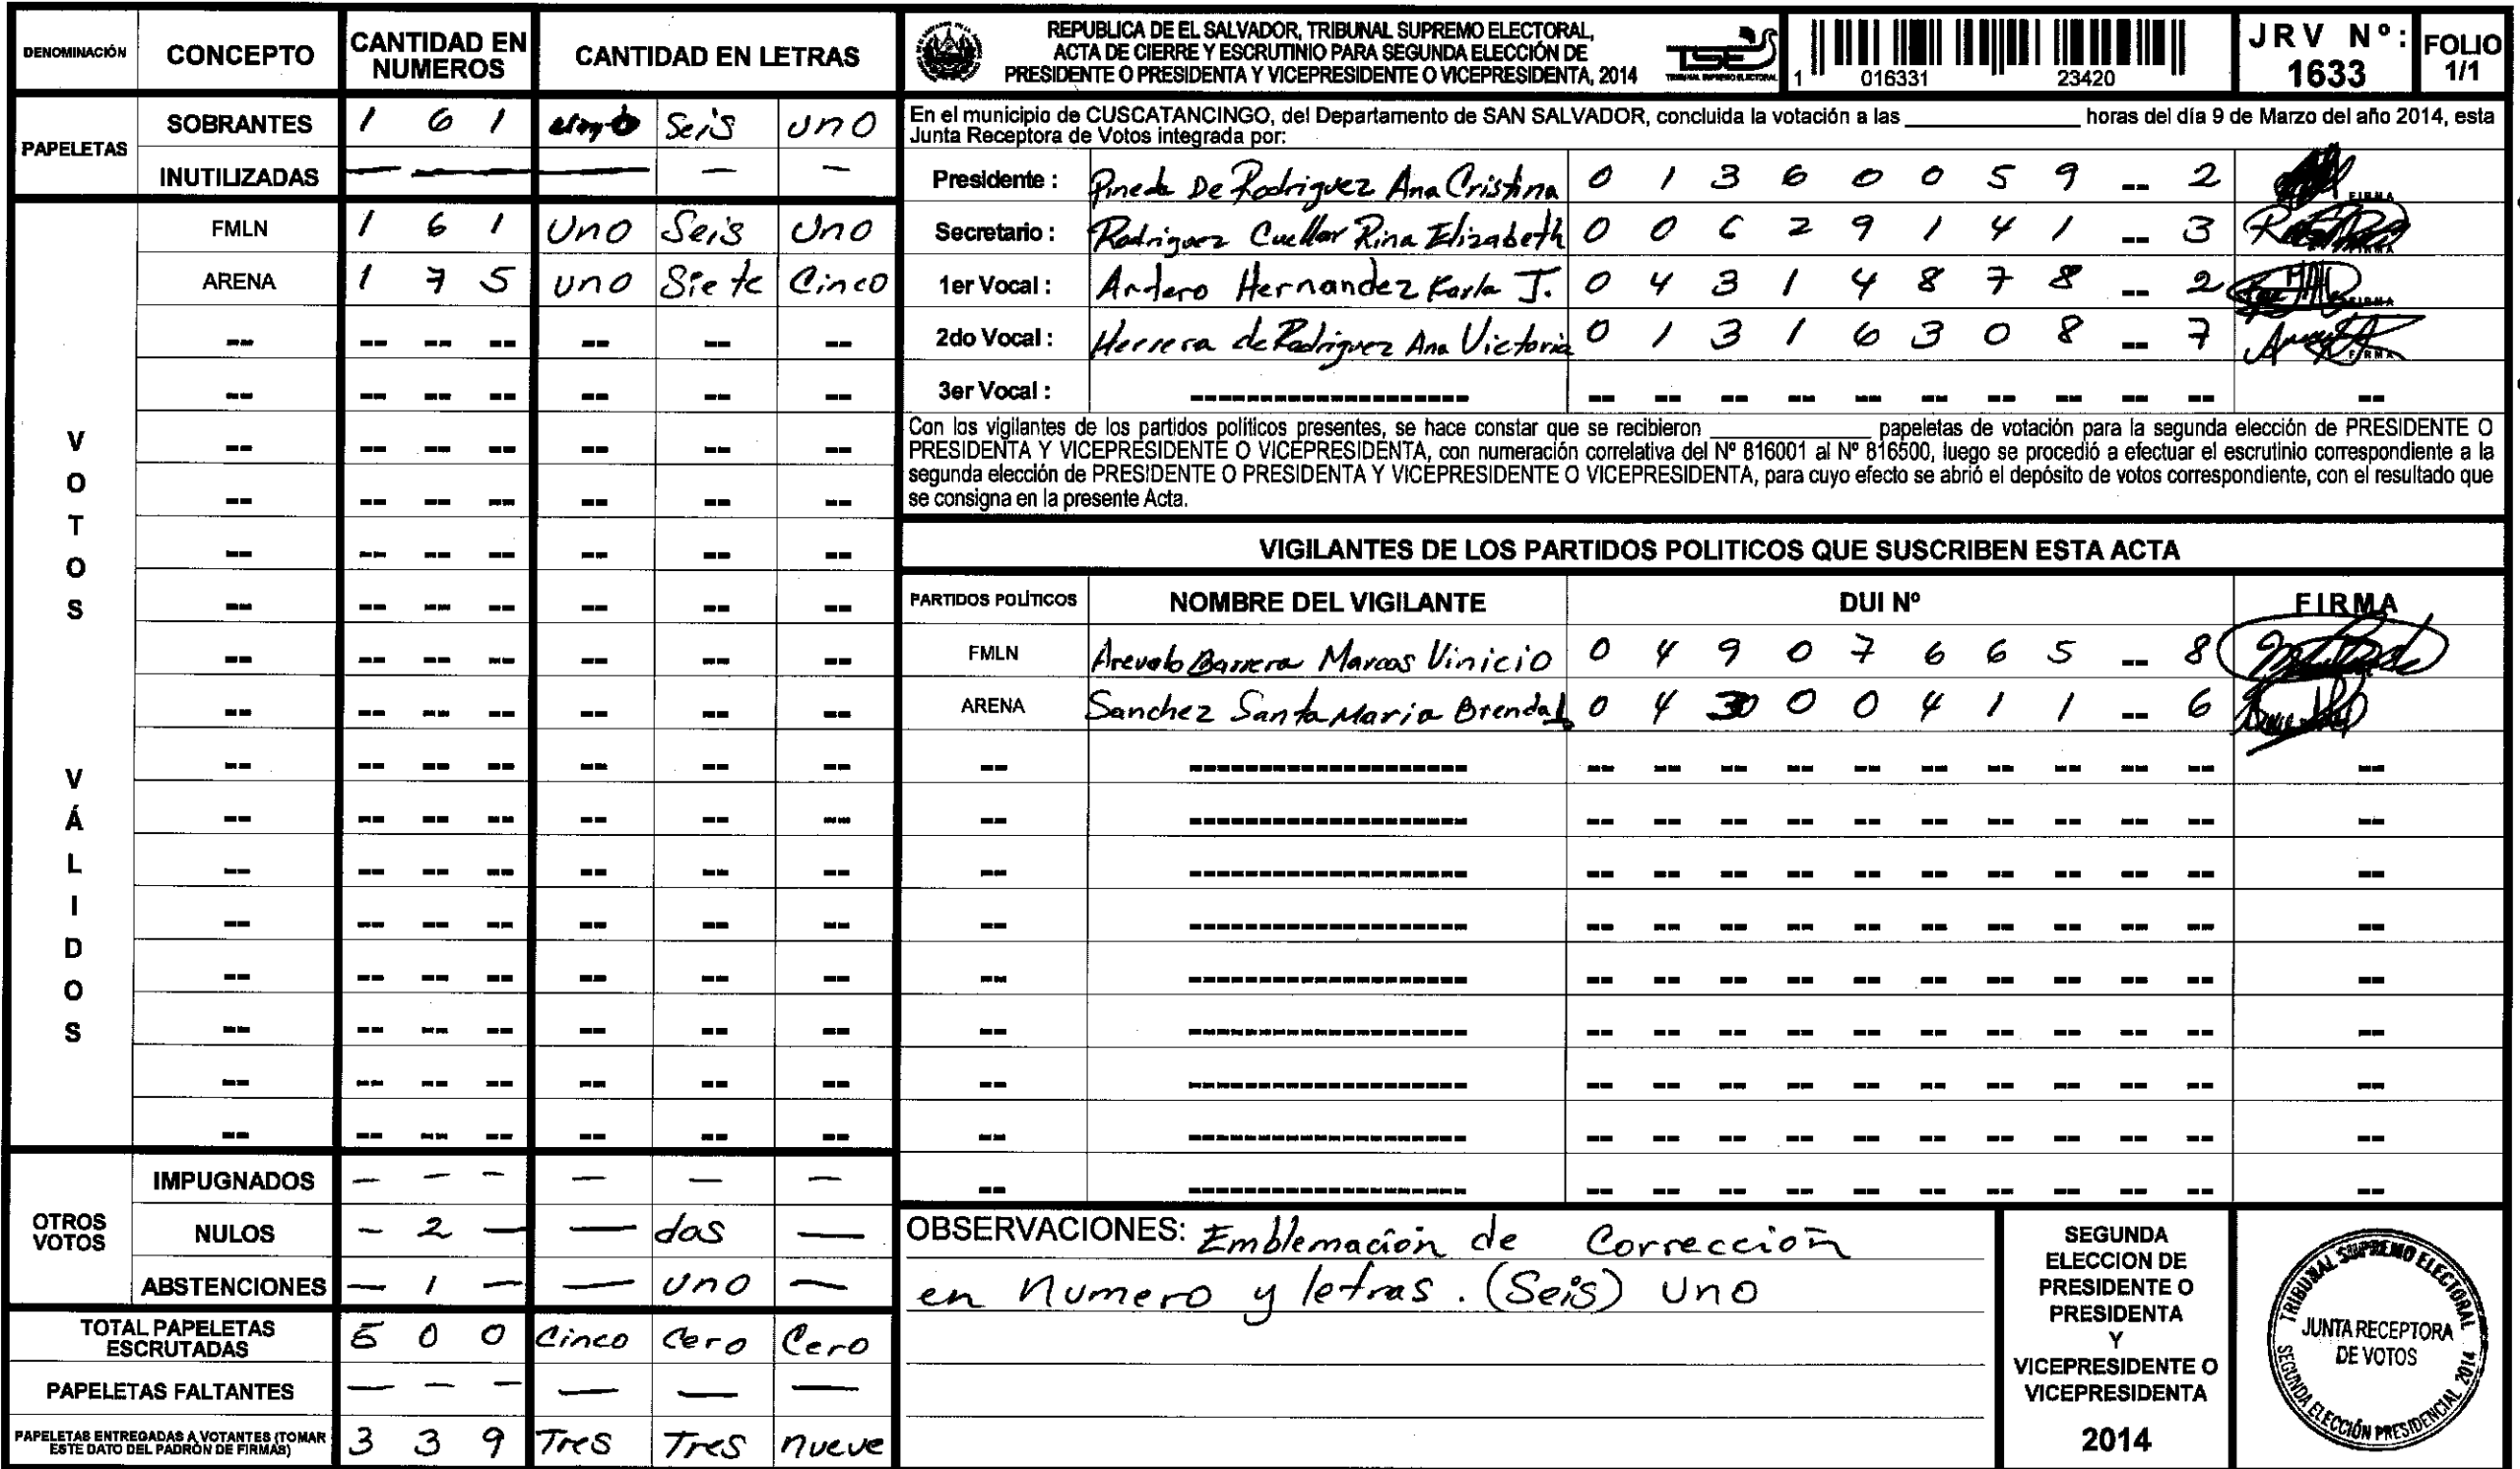 DENOMINACIÓN CONCEPTO CANTIDAD EN NUMEROS CANTIDAD EN LETRAS
PAPELETAS
SOBRANTES 1 6 1 Seis uno
INUTILIZADAS — — — — — —
VOTOS VÁLIDOS
FMLN 1 6 1 Uno Seis Uno
ARENA 1 7 5 uno Siete Cinco
OTROS VOTOS
IMPUGNADOS — — — — — —
NULOS — 2 — — dos —
ABSTENCIONES — 1 — — uno —
TOTAL PAPELETAS ESCRUTADAS 5 0 0 Cinco Cero Cero
PAPELETAS FALTANTES — — — — — —
PAPELETAS ENTREGADAS A VOTANTES (TOMAR ESTE DATO DEL PADRÓN DE FIRMAS) 3 3 9 Tres Tres nueve
REPUBLICA DE EL SALVADOR, TRIBUNAL SUPREMO ELECTORAL,
ACTA DE CIERRE Y ESCRUTINIO PARA SEGUNDA ELECCIÓN DE
PRESIDENTE O PRESIDENTA Y VICEPRESIDENTE O VICEPRESIDENTA, 2014
TSE
TRIBUNAL SUPREMO ELECTORAL
1 016331 23420
JRV Nº: 1633
FOLIO 1/1
En el municipio de CUSCATANCINGO, del Departamento de SAN SALVADOR, concluida la votación a las ________ horas del día 9 de Marzo del año 2014, esta
Junta Receptora de Votos integrada por:
Presidente : Pineda De Rodriguez Ana Cristina 0 1 3 6 0 0 5 9 -- 2 FIRMA
Secretario : Rodriguez Cuellar Rina Elizabeth 0 0 6 2 9 1 4 1 -- 3 FIRMA
1er Vocal : Artero Hernandez Karla J. 0 4 3 1 4 8 7 8 -- 2 FIRMA
2do Vocal : Herrera de Rodriguez Ana Victoria 0 1 3 1 6 3 0 8 -- 7 FIRMA
3er Vocal :
Con los vigilantes de los partidos políticos presentes, se hace constar que se recibieron ________ papeletas de votación para la segunda elección de PRESIDENTE O
PRESIDENTA Y VICEPRESIDENTE O VICEPRESIDENTA, con numeración correlativa del Nº 816001 al Nº 816500, luego se procedió a efectuar el escrutinio correspondiente a la
segunda elección de PRESIDENTE O PRESIDENTA Y VICEPRESIDENTE O VICEPRESIDENTA, para cuyo efecto se abrió el depósito de votos correspondiente, con el resultado que
se consigna en la presente Acta.
VIGILANTES DE LOS PARTIDOS POLITICOS QUE SUSCRIBEN ESTA ACTA
PARTIDOS POLÍTICOS NOMBRE DEL VIGILANTE DUI Nº FIRMA
FMLN Arevalo Barrera Marcos Vinicio 0 4 9 0 7 6 6 5 -- 8
ARENA Sanchez Santa Maria Brenda L 0 4 0 0 4 1 1 -- 6
OBSERVACIONES: Emblemación de Corrección
en Numero y letras. (Seis) Uno
SEGUNDA
ELECCION DE
PRESIDENTE O
PRESIDENTA
Y
VICEPRESIDENTE O
VICEPRESIDENTA
2014
TRIBUNAL SUPREMO ELECTORAL
JUNTA RECEPTORA
DE VOTOS
SEGUNDA ELECCIÓN PRESIDENCIAL 2014